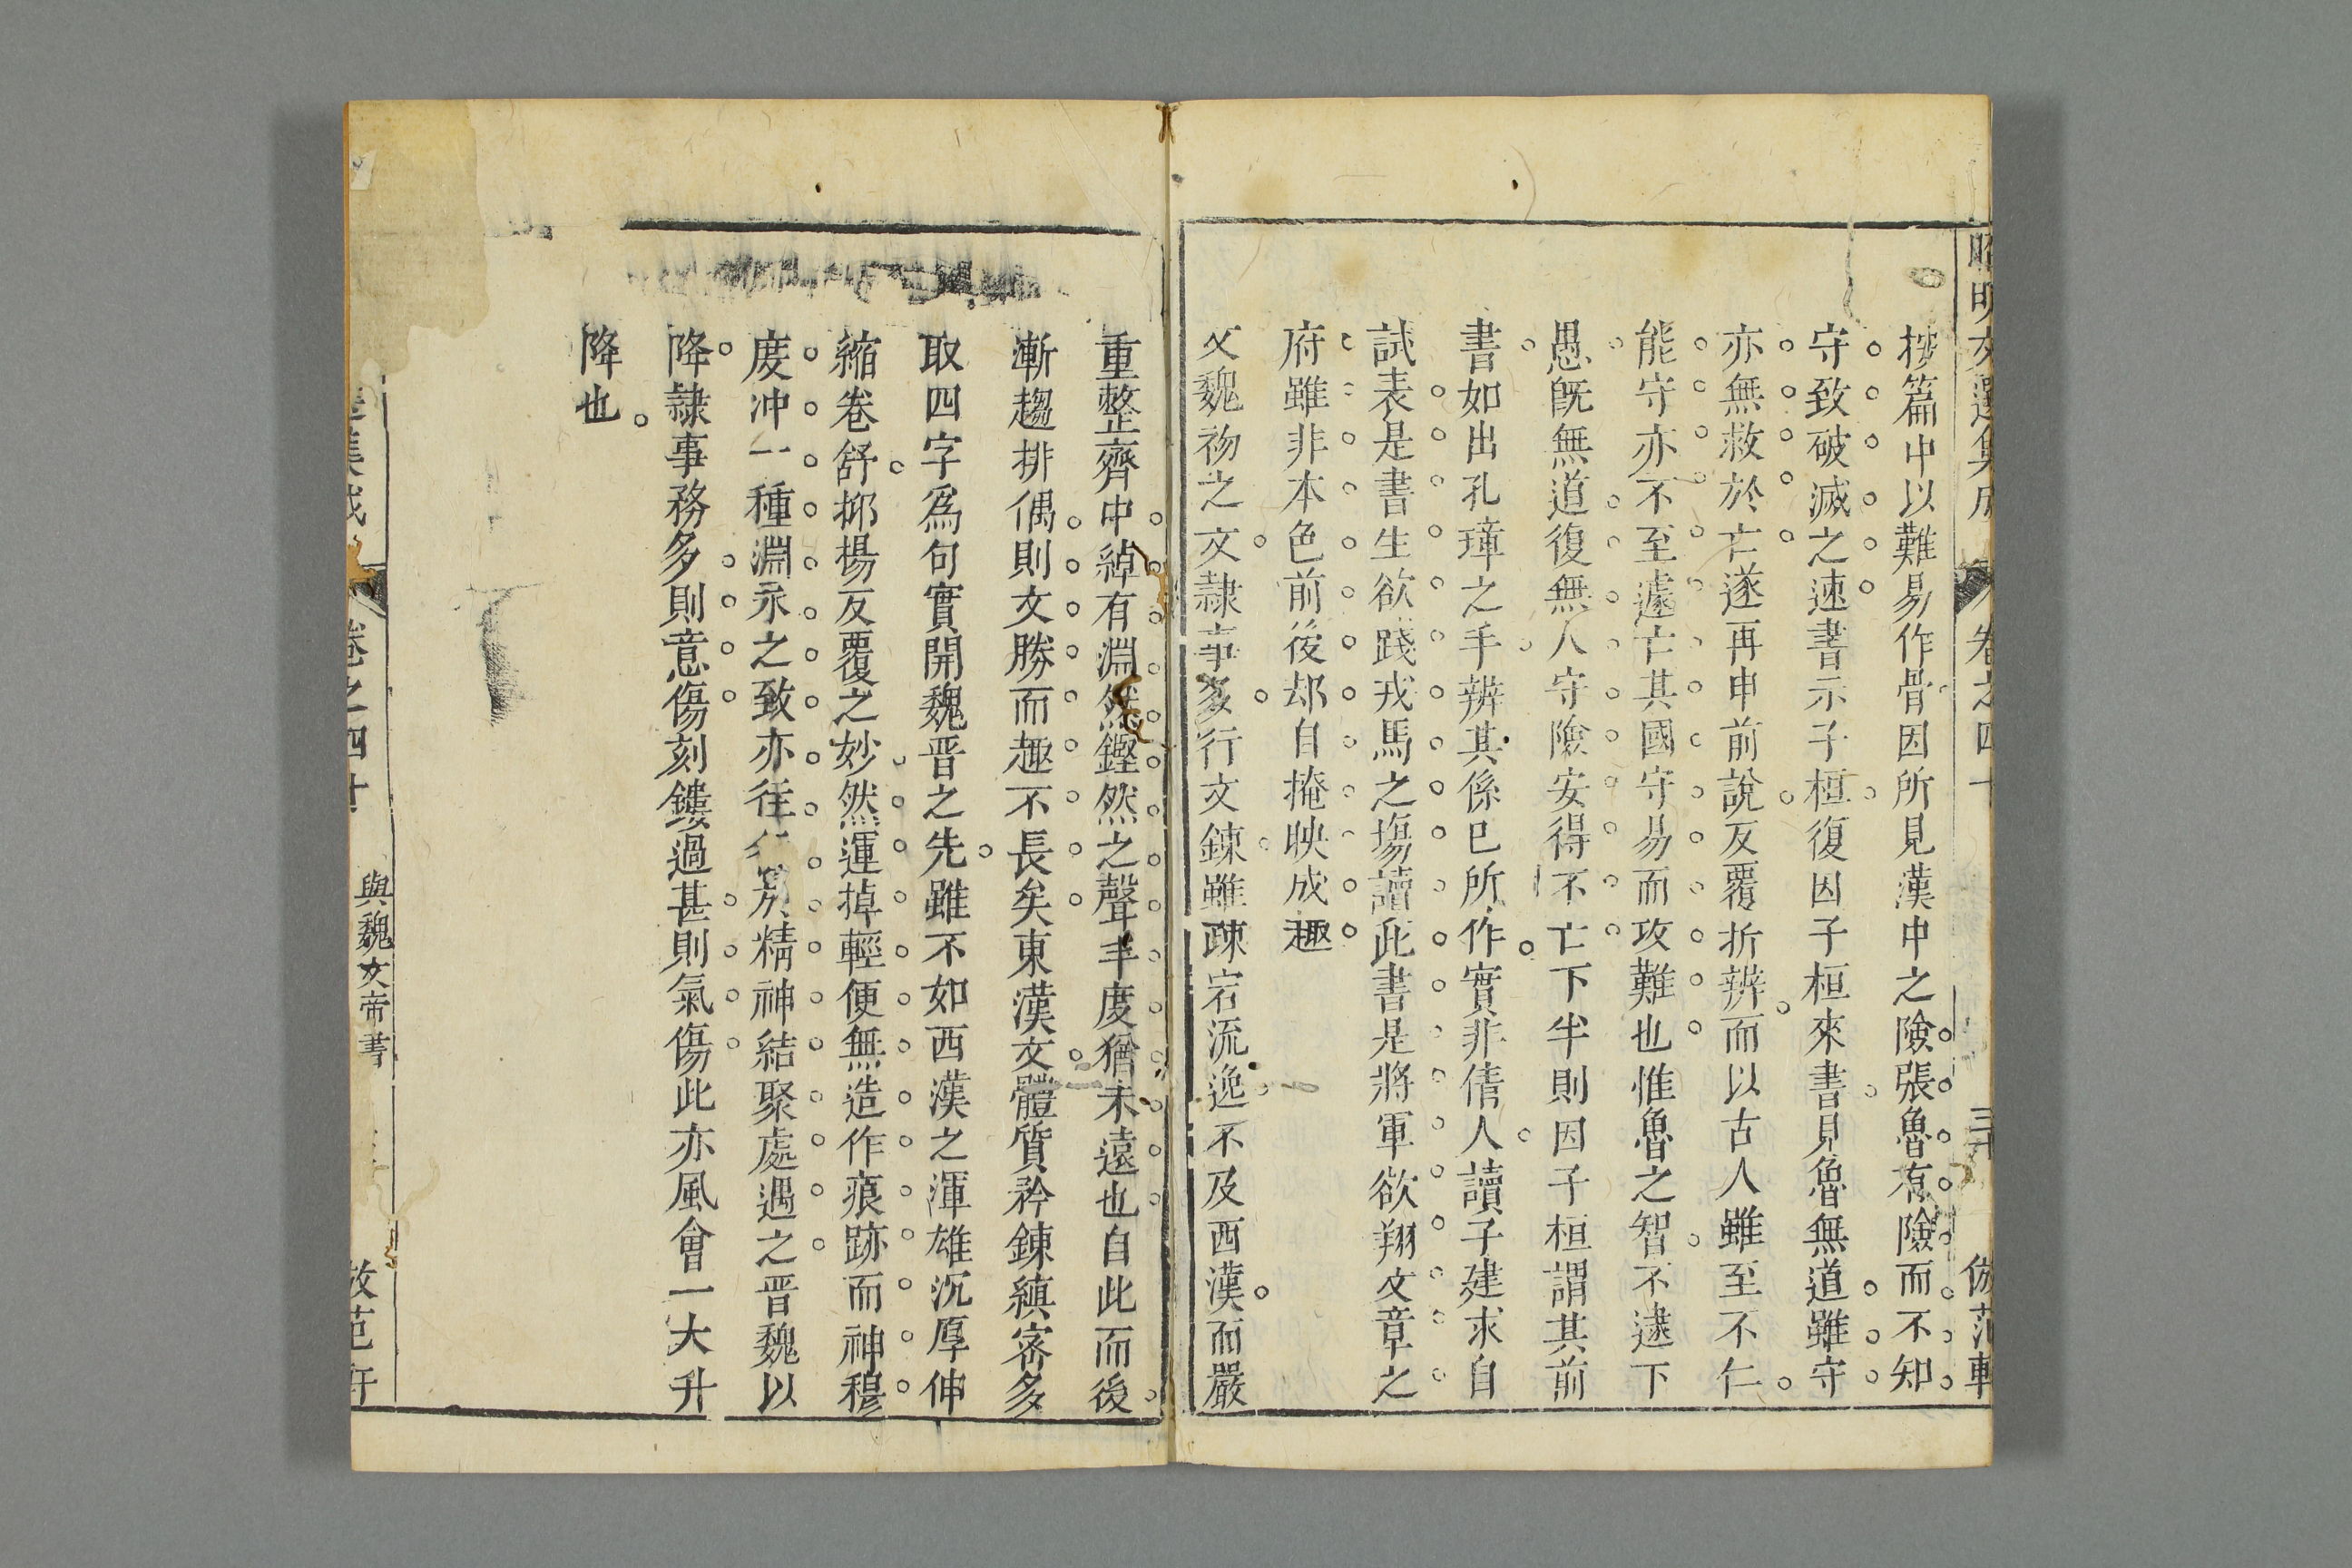 昭明文選集成 卷之四十 三十 倣范軒
按篇中以難易作骨因所見漢中之險張魯有險而不知
守致破滅之速書示子桓復因子桓來書見魯無道雖守
亦無救於亡遂再申前說反覆折辨而以古人雖至不仁
能守亦不至遽亡其國守易而攻難也惟魯之智不逮下
愚旣無道復無人守險安得不亡下半則因子桓謂其前
書如出孔璋之手辨其係已所作實非倩人讀子建求自
試表是書生欲踐戎馬之塲讀此書是將軍欲翔文章之
府雖非本色前後却自掩映成趣
文魏初之文隸事多行文鍊雖疎宕流逸不及西漢而嚴
重整齊中綽有淵然鏗然之聲丰度猶未遠也自此而後
漸趨排偶則文勝而趣不長矣東漢文體質矜鍊縝密多
取四字爲句實開魏晋之先雖不如西漢之渾雄沉厚伸
縮卷舒抑揚反覆之妙然運掉輕便無造作痕跡而神穆
度冲一種淵永之致亦往 別精神結聚處遇之晋魏以
降隸事務多則意傷刻鏤過甚則氣傷此亦風會一大升
降也
選集成 卷之四十 與魏文帝書 倣范軒